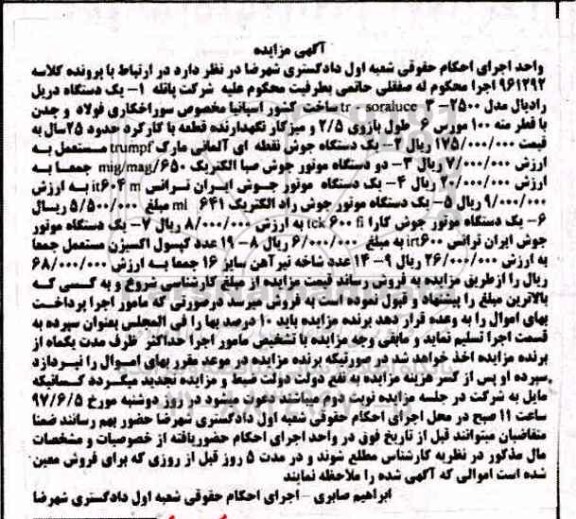 آگهی مزایده
واحد اجرای احکام حقوقی شعبه اول دادگستری شهرضا در نظر دارد در ارتباط با پرونده کلاسه
۹۶۱۲۹۲ اجرا محکوم له صفقلی حاتمی بطرفیت محکوم علیه شرکت پاتله ۱- یک دستگاه دریل
رادیال مدل ۲۵۰۰- ۳ tr - soraluce ساخت کشور اسپانیا مخصوص سوراخکاری فولاد و چدن
با قطر مته ۱۰۰ مورس ۶ طول بازوی ۲/۵ و میزکار نگهدارنده قطعه با کارکرد حدود ۲۵سال به
قیمت ۱۷۵/۰۰۰/۰۰۰ ریال ۲- یک دستگاه جوش نقطه ای آلمانی مارک trumpf مستعمل به
ارزش ۷/۰۰۰/۰۰۰ ریال ۳- دو دستگاه موتور جوش صبا الکتریک mig/mag/۶۵۰ جمعا به
ارزش ۲۰/۰۰۰/۰۰۰ ریال ۴- یک دستگاه موتور جوش ایران ترانس it۶۰۴ m به ارزش
۹/۰۰۰/۰۰۰ ریال ۵- یک دستگاه موتور جوش راد الکتریک ۶۴۱ ml مبلغ ۵/۵۰۰/۰۰۰ ریال
۶- یک دستگاه موتور جوش کارا tck ۶۰۰ fi به ارزش ۸/۰۰۰/۰۰۰ ریال ۷- یک دستگاه موتور
جوش ایران ترانس irt۶۰۰ به مبلغ ۶/۰۰۰/۰۰۰ ریال ۸- ۱۹ عدد کپسول اکسیژن مستعمل جمعا
به ارزش ۲۶/۰۰۰/۰۰۰ ریال ۹- ۱۴ عدد شاخه تیرآهن سایز ۱۶ جمعا به ارزش ۶۸/۰۰۰/۰۰۰
ریال را ازطریق مزایده به فروش رساند قیمت مزایده از مبلغ کارشناسی شروع و به کسی که
بالاترین مبلغ را پیشنهاد و قبول نموده است به فروش میرسد درصورتی که مامور اجرا پرداخت
بهای اموال را به وعده قرار دهد برنده مزایده باید ۱۰ درصد بها را فی المجلس بعنوان سپرده به
قسمت اجرا تسلیم نماید و مابقی وجه مزایده با تشخیص مامور اجرا حداکثر ظرف مدت یکماه از
برنده مزایده اخذ خواهد شد در صورتیکه برنده مزایده در موعد مقرر بهای اموال را نپردازد
سپرده او پس از کسر هزینه مزایده به نفع دولت دولت ضبط و مزایده تجدید میگردد کسانیکه
مایل به شرکت در جلسه مزایده نوبت دوم میباشند دعوت میشود در روز دوشنبه مورخ ۹۷/۶/۵
ساعت ۱۱ صبح در محل اجرای احکام حقوقی شعبه اول دادگستری شهرضا حضور بهم رسانند ضمنا
متقاضیان میتوانند قبل از تاریخ فوق در واحد اجرای احکام حضوریافته از خصوصیات و مشخصات
مال مذکور در نظریه کارشناس مطلع شوند و در مدت ۵ روز قبل از روزی که برای فروش معین
شده است اموالی که آگهی شده را ملاحظه نمایند
ابراهیم صابری - اجرای احکام حقوقی شعبه اول دادگستری شهرضا